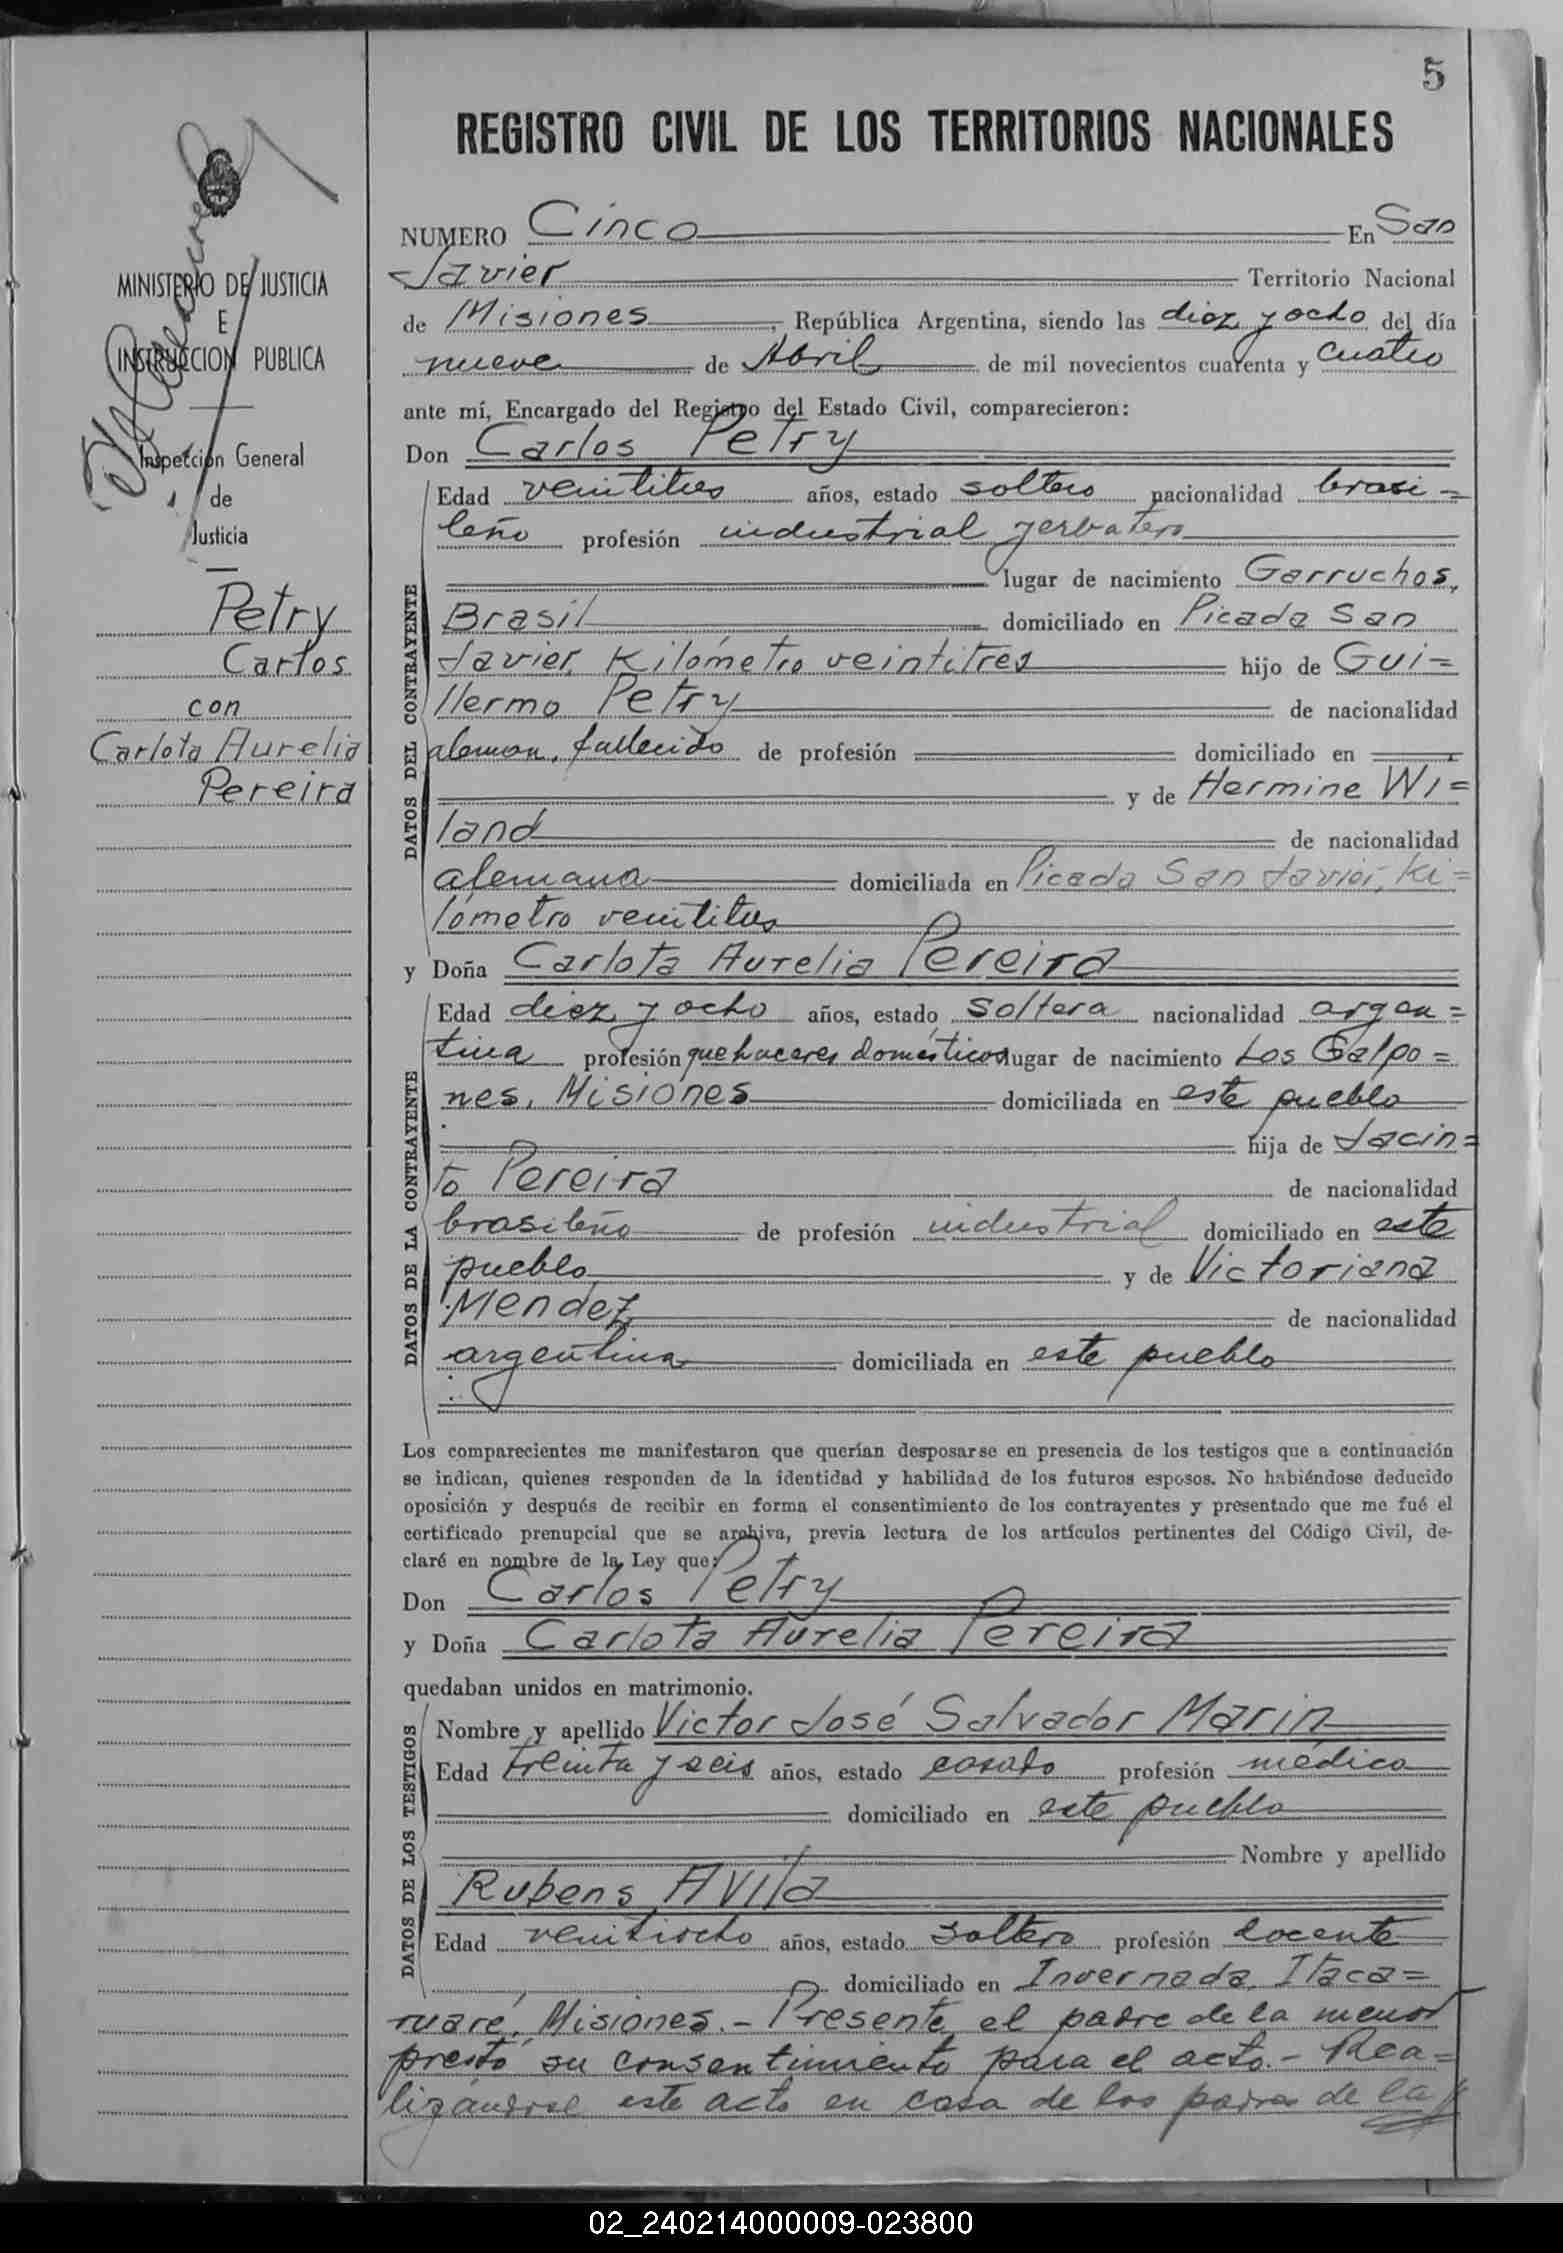 5
REGISTRO CIVIL DE LOS TERRITORIOS NACIONALES
MINISTERIO DE JUSTICIA
E
INSTRUCCION PUBLICA
Inspección General
de
Justicia
Petry
Carlos
con
Carlota Aurelia
Pereira
NUMERO Cinco En San
Javier Territorio Nacional
de Misiones, República Argentina, siendo las diez y ocho del día
nueve de Abril de mil novecientos cuarenta y cuatro
ante mí, Encargado del Registro del Estado Civil, comparecieron:
Don Carlos Petry
DATOS DEL CONTRAYENTE
Edad veintitres años, estado soltero nacionalidad brasi=
leño profesión industrial yerbatero
lugar de nacimiento Garruchos,
Brasil domiciliado en Picada San
Javier, Kilómetro veintitres hijo de Gui=
llermo Petry de nacionalidad
aleman, fallecido de profesión domiciliado en
y de Hermine Wi=
land de nacionalidad
alemana domiciliada en Picada San Javier, Ki=
lómetro veintitres
y Doña Carlota Aurelia Pereira
DATOS DE LA CONTRAYENTE
Edad diez y ocho años, estado soltera nacionalidad argen=
tina profesión quehaceres domésticos lugar de nacimiento Los Galpo=
nes, Misiones domiciliada en este pueblo
hija de Jacin=
to Pereira de nacionalidad
brasileño de profesión industrial domiciliado en este
pueblo y de Victoriana
Mendez de nacionalidad
argentina domiciliada en este pueblo
Los comparecientes me manifestaron que querían desposarse en presencia de los testigos que a continuación
se indican, quienes responden de la identidad y habilidad de los futuros esposos. No habiéndose deducido
oposición y después de recibir en forma el consentimiento de los contrayentes y presentado que me fué el
certificado prenupcial que se archiva, previa lectura de los artículos pertinentes del Código Civil, de-
claré en nombre de la Ley que:
Don Carlos Petry
y Doña Carlota Aurelia Pereira
quedaban unidos en matrimonio.
DATOS DE LOS TESTIGOS
Nombre y apellido Victor José Salvador Marin
Edad treinta y seis años, estado casado profesión médico
domiciliado en este pueblo
Nombre y apellido
Rubens Avila
Edad veintiocho años, estado soltero profesión docente
domiciliado en Invernada, Itaca=
ruaré, Misiones.- Presente, el padre de la menor
prestó su consentimiento para el acto.- Rea=
lizándose este acto en casa de los padres de la
02_240214000009-023800